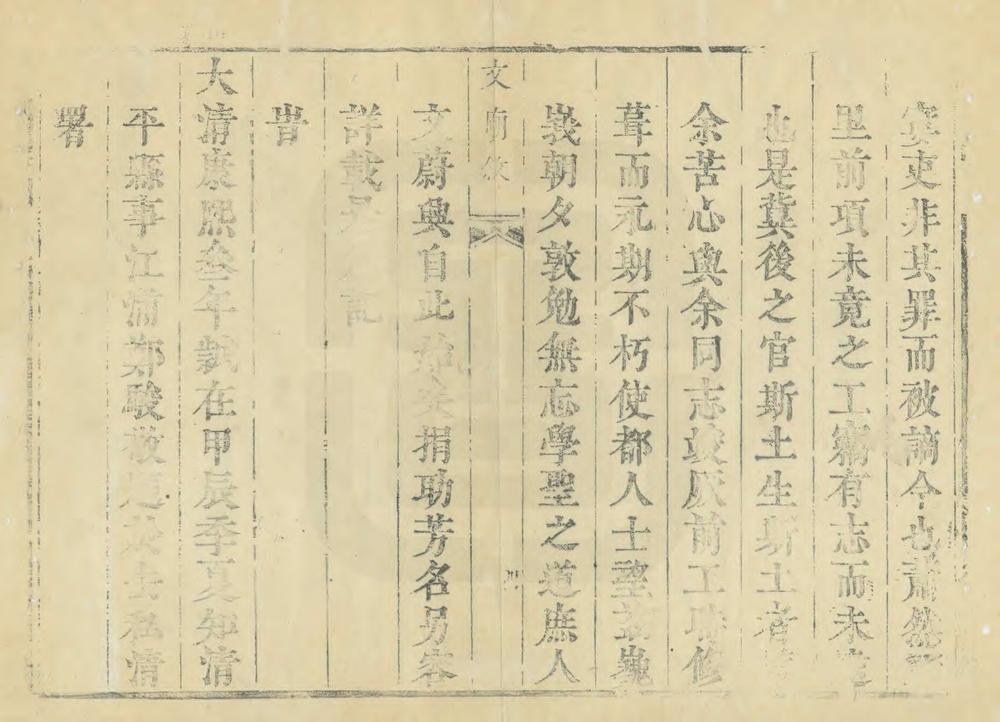 寞吏非其罪而被謫今也蕭然
里前項未竟之工竊有志而未
也是冀後之官斯土生斯土者
余苦心與余同志竣厥前工時修
葺而永期不朽使都人士望茲巍
峩朝夕敦勉無忘學聖之道庶人
文蔚興自此 捐助芳名另容
詳載 記
文廟
旹
大清康熙叁年歲在甲辰季夏知清
平縣事江浦鄭駿 於 私清
署